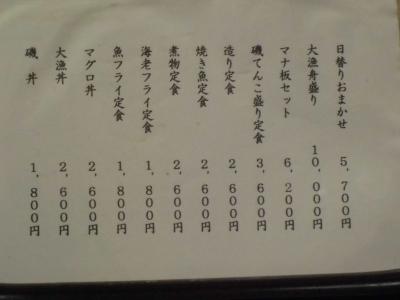 日替りおまかせ 5,700円
大漁舟盛り 10,000円
マナ板セット 6,200円
磯てんこ盛り定食 3,600円
造り定食 2,600円
焼き魚定食 2,600円
煮物定食 2,600円
海老フライ定食 1,800円
魚フライ定食 1,800円
マグロ丼 2,600円
大漁丼 2,600円
磯丼 1,800円